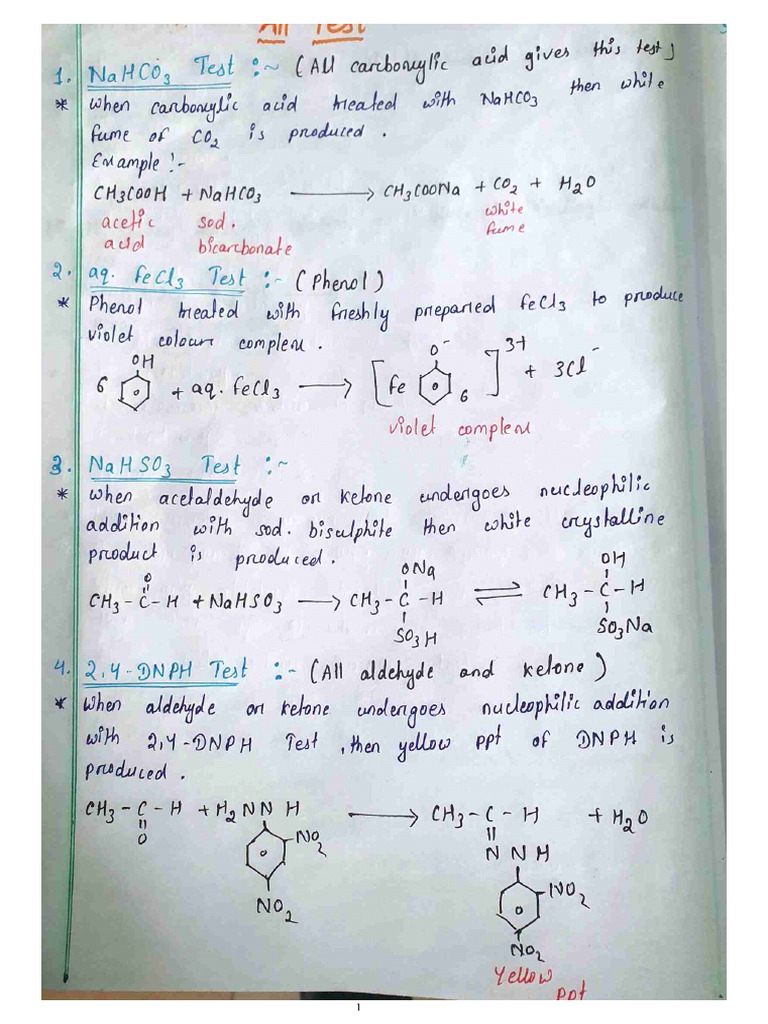 All Test
1. NaHCO3 Test :~ (All carboxylic acid gives this test)
* When carboxylic acid treated with NaHCO3 then white
fume of CO2 is produced.
Example :-
CH3COOH + NaHCO3 ⟶ CH3COONa + CO2 + H2O
acetic sod. white
acid bicarbonate fume
2. aq. FeCl3 Test :- (Phenol)
* Phenol treated with freshly prepared FeCl3 to produce
violet colour complex.
OH O⁻
6 + aq. FeCl3 ⟶ [Fe 6]3+ + 3Cl⁻
violet complex
3. NaHSO3 Test :~
* When acetaldehyde or ketone undergoes nucleophilic
addition with sod. bisulphite then white crystalline
product is produced.
O ONa OH
CH3-C-H + NaHSO3 ⟶ CH3-C-H ⇌ CH3-C-H
SO3H SO3Na
4. 2,4-DNPH Test :- (All aldehyde and ketone)
* When aldehyde or ketone undergoes nucleophilic addition
with 2,4-DNPH Test, then yellow ppt of DNPH is
produced.
CH3-C-H + H2NNH ⟶ CH3-C-H + H2O
O NNH
NO2 NO2
NO2 NO2
Yellow
ppt
1